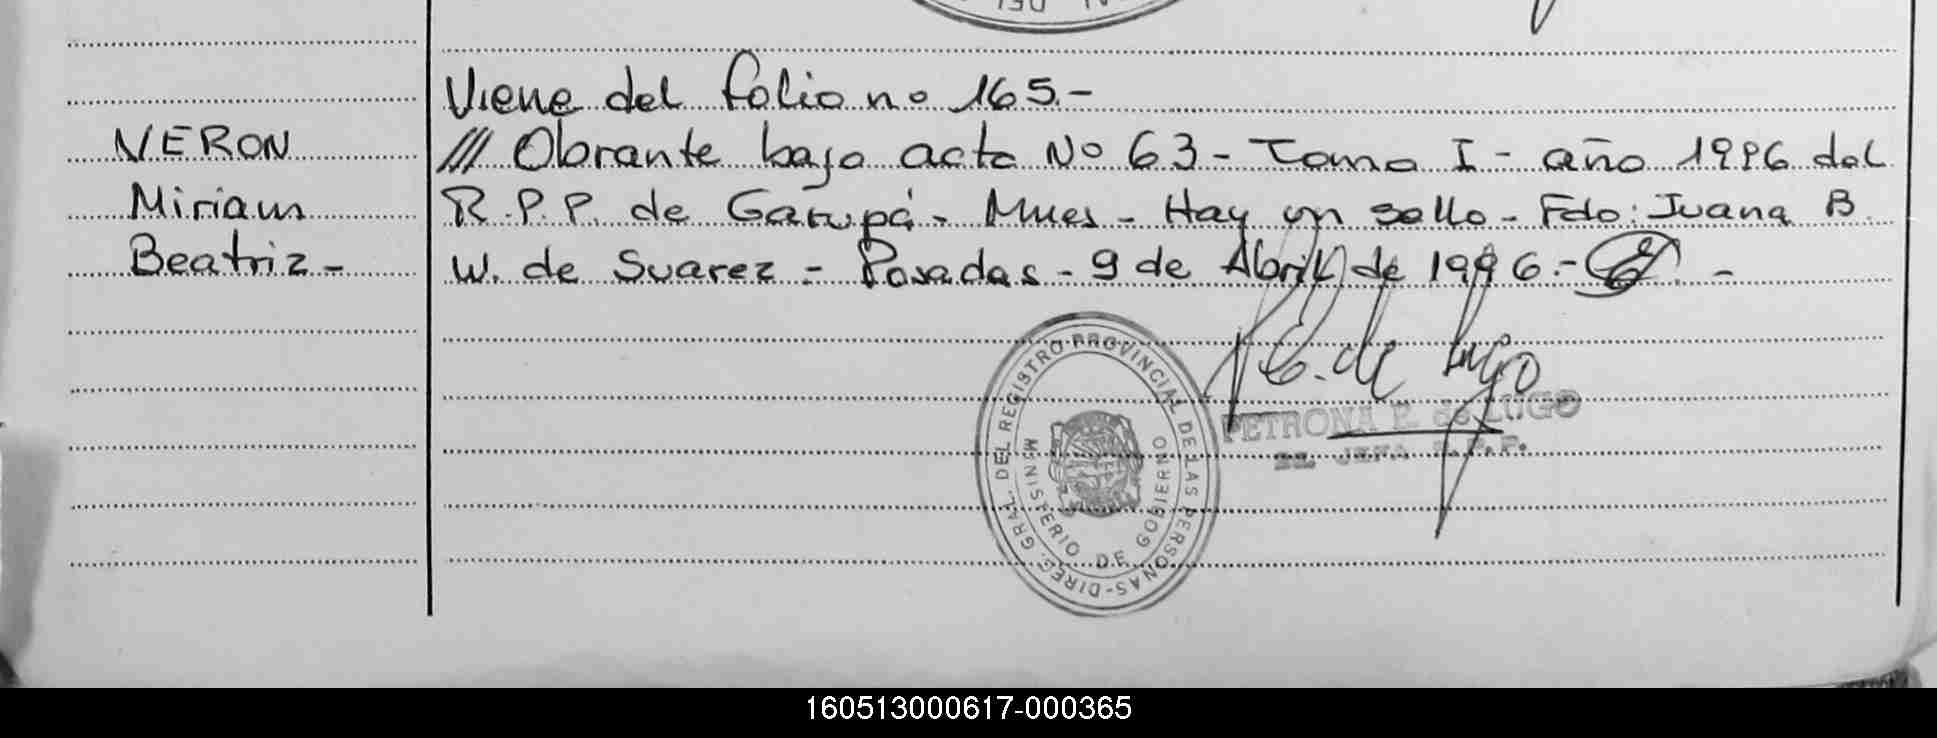 Viene del folio no 165.-
VERON
/// Obrante bajo acta No 63 - Tomo I - año 1996 del
Miriam
R.P.P. de Garupá - Mnes - Hay un sello - Fdo: Juana B.
Beatriz -
W. de Suarez - Posadas - 9 de Abril de 1996.- -
P. E. de Lugo
PETRONA E. de LUGO
JEFA R.P.P.
DIREC. GRAL. DEL REGISTRO PROVINCIAL DE LAS PERSONAS-
MINISTERIO DE GOBIERNO
160513000617-000365